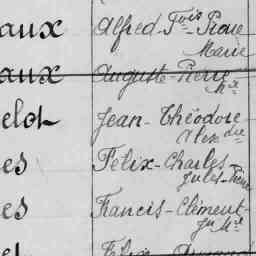 aux Alfred-Fois-Pierre
Marie
aux Auguste-Pierre
Mie
elot Jean-Théodore
Alexdre
es Félix-Charles-
Jules-Pierre
es Francis-Clément-
Jh Mie
el Félix Armand